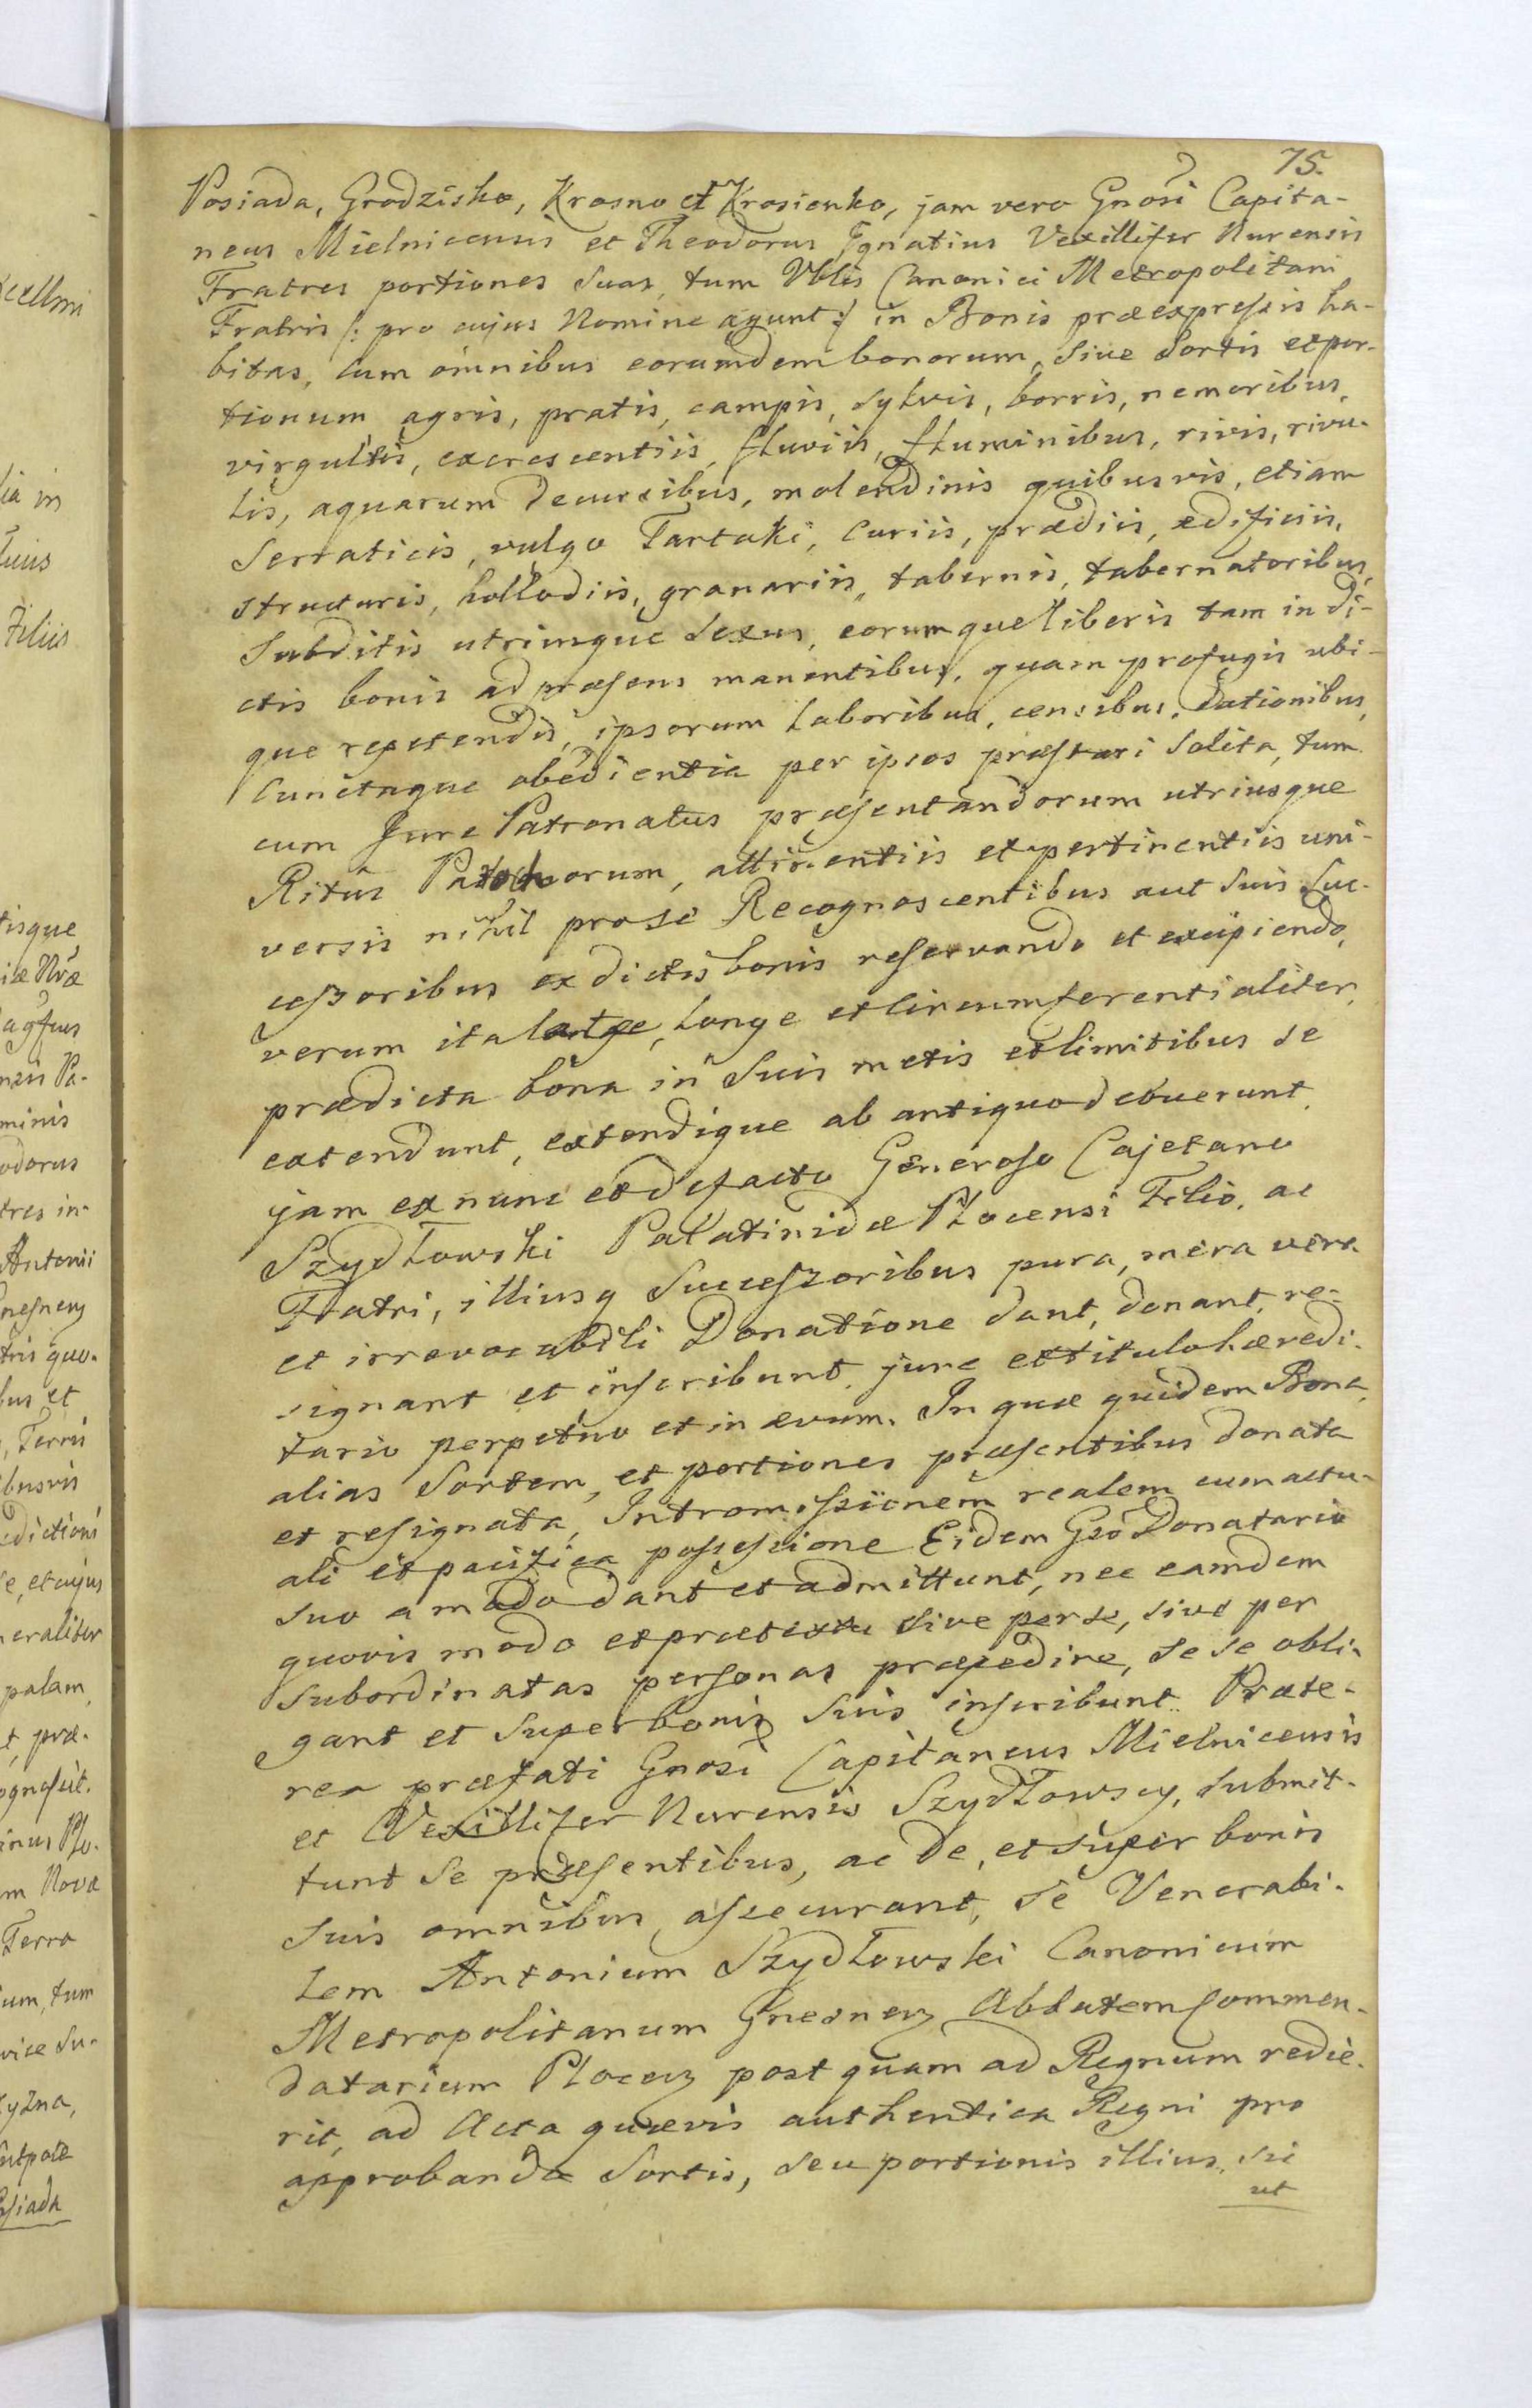 75.
Posiada, Grodzisko, Krosno et Krosienko, jam vero Gnosi Capita-
neus Mielnicensis et Theodorus Ignatius Vexillifer Nurensis
Fratres portiones suas, tum Vblis Canonici Metropolitani
Fratris /: pro cujus Nomine agunt :/ in Bonis præexpressis ha-
bitas, cum omnibus eorumdem bonorum, sive Sortis et por-
tionum agris, pratis, campis, sylvis, borris, nemoribus,
virgultis, excrescentiis, fluviis, fluminibus, rivis, rivu-
lis, aquarum decursibus, molendinis quibusvis, etiam
Serraticis, vulgo Tartaki, Curiis, prædiis, ædificiis,
structuris, hollodiis, granariis, tabernis, tabernatoribus,
Subditis utriusque Sexus, eorumque liberis tam in di-
ctis bonis ad præsens manentibus, quam profugis ubi-
que repetendis, ipsorum laboribus, censibus, dationibus,
Cunctaque obedientia per ipsos præstari solita, tum
cum Jure Patronatus præsentandorum utriusque
Ritus Parochorum, attinentiis et pertinentiis uni-
versis nihil pro se Recognoscentibus aut Suis Suc-
cessoribus ex dictis bonis reservando et excipiendo,
verum ita late, longe et circumferentialiter,
prædicta bona in Suis metis et limitibus se
extendunt, extendique ab antiquo debuerunt,
jam ex nunc et de facto Generoso Cajetano
Szydłowski Palatinidæ Plocensi Filio, ac
Fratri, illiusq Successoribus pura, mera vera
et irrevocabili Donatione dant, donant, re-
signant et inscribunt, jure et titulo hæredi-
tario perpetuo et in ævum. In quæ quidem Bona,
alias Sortem, et portiones præsentibus donata
et resignata, Intromissionem realem cum actu-
ali et pacifica possessione Eidem Gso Donatario
suo a modo dant et admittunt, nec eamdem
quovis modo et prætextu sive per se, sive per
Subordinatas personas præpedire, se se obli-
gant et Super bonis Suis inscribunt. Præte-
rea præfati Gnosi Capitaneus Mielnicensis
et Vexillifer Nurensis Szydłowscy, submit-
tunt se præsentibus, ac de, et super bonis
suis omnibus, assecurant, se Venerabi-
lem Antonium Szydłowski Canonicum
Metropolitanum Gnesnen Abbatem Commen-
datarium Plocen postquam ad Regnum redie-
rit, ad Acta quævis authentica Regni pro
approbanda Sortis, seu portionis illius, sic
ut